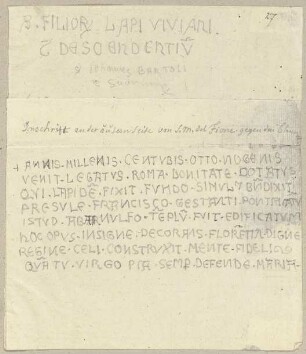 S. FILIOR LAPI VIVIANI.
⁊ DESCENDENTIṼ
27
Johannes BARTOLI
Inschrift auf der äußeren seite von S. M. del Fiore gegen den
+ ANNIS · MILLENIS · CENTVBIS · OTTO · NOGENIS
VENIT · LEGATVS · ROMA · BONITATE · DOTATVS
QVI · LAPIDĒ · FIXIT · FVNDO · SIMVL · BNDIXIT
PRESVLE · FRANCISCO · GESTANTI · PONTIFICATV
ISTVD · ABARNVLFO · TEPLV̄ · FVIT · EDIFICATVM
HOC · OPVS · INSIGNE · DECORANS · FLORETIA · DIGNE
REGINE · CELI · CONSTRVXIT · MENTE · FIDELI
QVA TV · VIRGO · PIA · SEMP · DEFENDE · MARIA